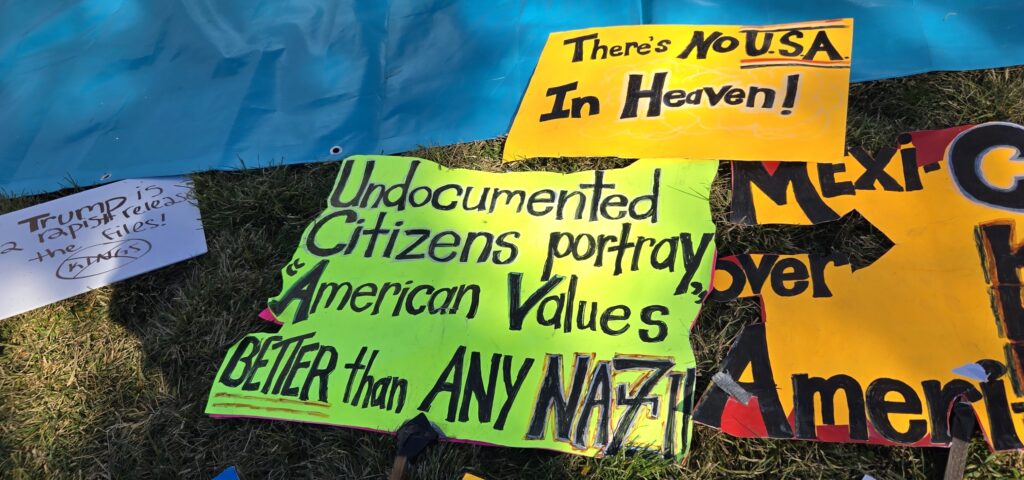 There's No U.S.A.
In Heaven!
Trump is
a rapist release
the files!
Undocumented
Citizens portray,
"American Values"
BETTER than ANY NAZI
Mexi-C
over
Ameri